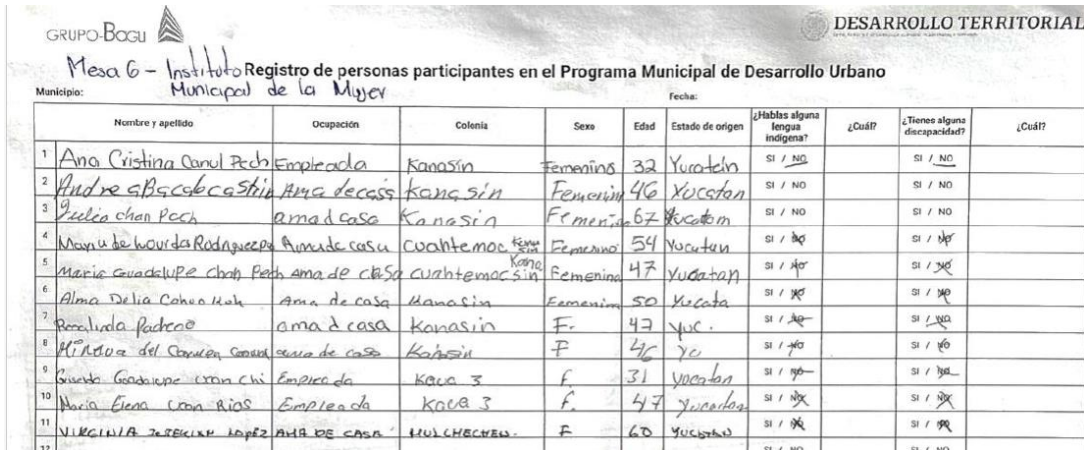 GRUPO-BOGU
DESARROLLO TERRITORIAL
Mesa 6 - Instituto Municipal de la Mujer
Registro de personas participantes en el Programa Municipal de Desarrollo Urbano
Municipio: Fecha:
Nombre y apellido Ocupación Colonia Sexo Edad Estado de origen ¿Hablas alguna lengua indígena? ¿Cuál? ¿Tienes alguna discapacidad? ¿Cuál?
1 Ana Cristina Canul Pech Empleada Kanasín Femenino 32 Yucatán SI / NO SI / NO
2 Andrea Ama de casa Kanasin Femenin 46 Yucatan SI / NO SI / NO
3 Julia chan Pech ama d casa Kanasin Femenin 67 SI / NO SI / NO
4 de Lourdes Ama de casa Cuahtemoc Kanasin Femenino 54 Yucatan SI / NO SI / NO
5 Maria Guadalupe Chan Pech Ama de casa Cuahtemoc Kanasin Femenina 47 Yucatan SI / NO SI / NO
6 Alma Delia Ama de casa Kanasin Femenino 50 Yucata SI / NO SI / NO
7 Rosalinda Pacheco ama d casa Kanasin F. 47 Yuc. SI / NO SI / NO
8 del Carmen ama de casa Kanasin F 46 Yc SI / NO SI / NO
9 Guadalupe Chi Empleada 3 F. 31 Yucatan SI / NO SI / NO
10 Maria Elena Rios Empleada 3 F. 47 Yucatan SI / NO SI / NO
11 VIRGINIA LOPEZ AMA DE CASA MULCHECHEN. F 60 YUCATAN SI / NO SI / NO
12 SI / NO SI / NO